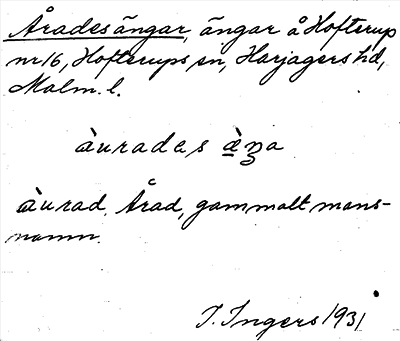 Åradesängar, ängar å Hofterup
nr 16, Hofterups sn, Harjagers hd,
Malm. l.
àurades æ̀ŋa
àurad, Årad, gammalt mans-
namn.
I. Ingers 1931